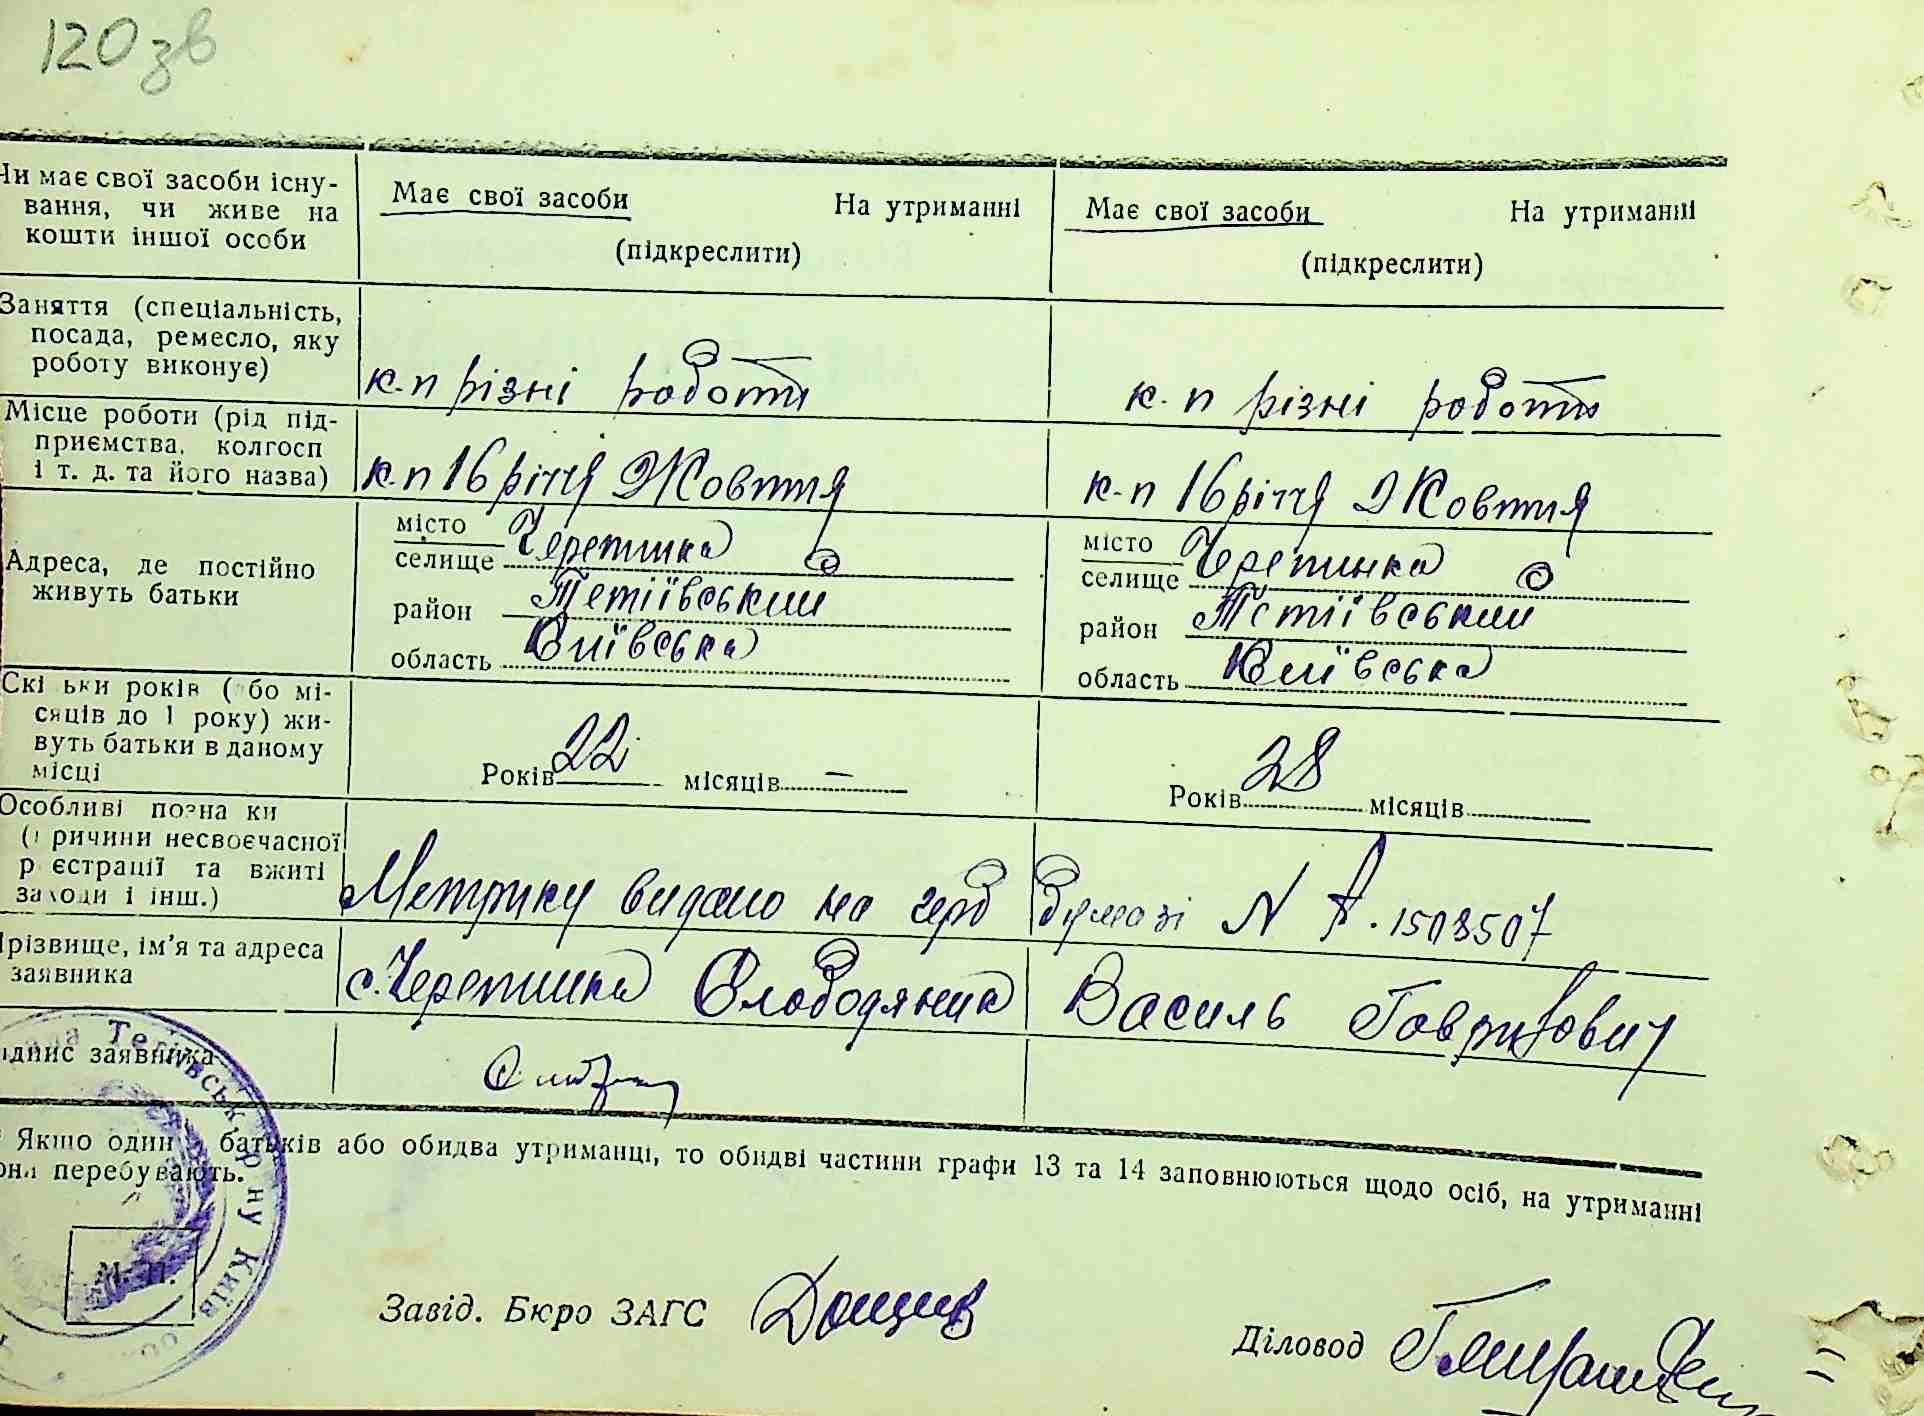 120 зв
Чи має свої засоби існу-
вання, чи живе на
кошти іншої особи
Має свої засоби На утриманні
(підкреслити)
Має свої засоби На утриманні
(підкреслити)
Заняття (спеціальність,
посада, ремесло, яку
роботу виконує)
к.-п різні роботи
к.-п різні роботи
Місце роботи (рід під-
приємства, колгосп
і т. д. та його назва)
к-п 16 річчя Жовтня
к-п 16 річчя Жовтня
Адреса, де постійно
живуть батьки
місто
селище Черепинка
район Тетіївський
область Київська
місто
селище Черепинка
район Тетіївський
область Київська
Скі ьки років ( бо мі-
сяців до 1 року) жи-
вуть батьки в даному
місці
Років 22 місяців —
Років 28 місяців
Особливі позна ки
( ричини несвоєчасної
р єстрації та вжиті
заходи і інш.)
Метрику видано на герб бумазі N А. 1503507
Прізвище, ім'я та адреса
заявника
с. Черепинка Слободяник Василь Гаврилович
ідпис заявника
* Якщо один батьків або обидва утриманці, то обидві частини графи 13 та 14 заповнюються щодо осіб, на утриманні
они перебувають.
М. П.
Тетіївськ р-ну Київ
Завід. Бюро ЗАГС
Діловод